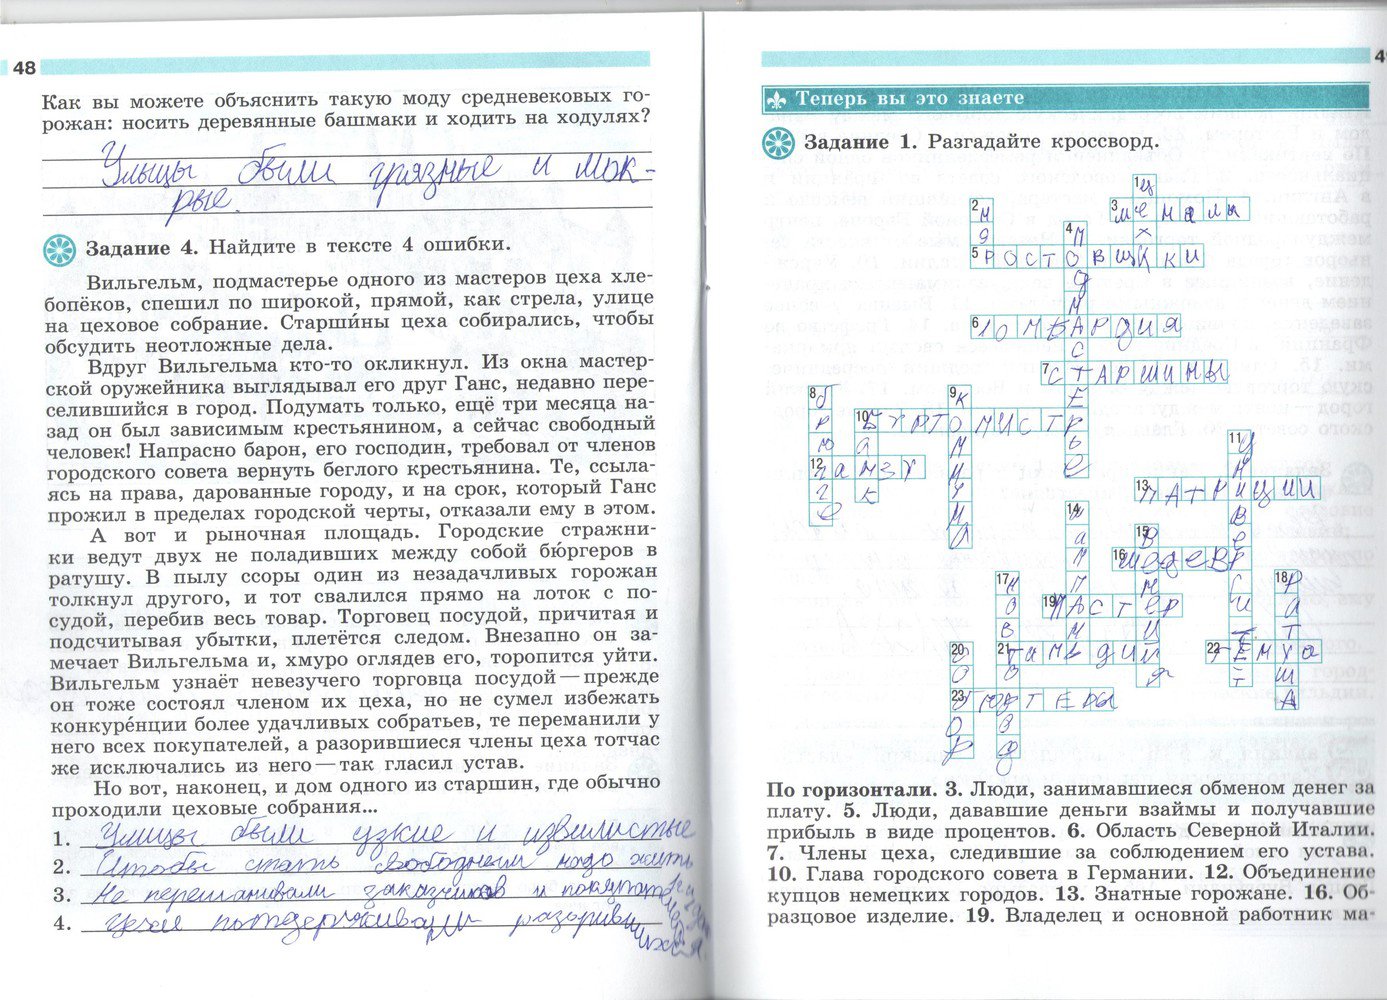 48
Как вы можете объяснить такую моду средневековых го-
рожан: носить деревянные башмаки и ходить на ходулях?
Улицы были грязные и мок-
рые.
Задание 4. Найдите в тексте 4 ошибки.
Вильгельм, подмастерье одного из мастеров цеха хле-
бопёков, спешил по широкой, прямой, как стрела, улице
на цеховое собрание. Старши́ны цеха собирались, чтобы
обсудить неотложные дела.
Вдруг Вильгельма кто-то окликнул. Из окна мастер-
ской оружейника выглядывал его друг Ганс, недавно пере-
селившийся в город. Подумать только, ещё три месяца на-
зад он был зависимым крестьянином, а сейчас свободный
человек! Напрасно барон, его господин, требовал от членов
городского совета вернуть беглого крестьянина. Те, ссыла-
ясь на права, дарованные городу, и на срок, который Ганс
прожил в пределах городской черты, отказали ему в этом.
А вот и рыночная площадь. Городские стражни-
ки ведут двух не поладивших между собой бю́ргеров в
ратушу. В пылу ссоры один из незадачливых горожан
толкнул другого, и тот свалился прямо на лоток с по-
судой, перебив весь товар. Торговец посудой, причитая и
подсчитывая убытки, плетётся следом. Внезапно он за-
мечает Вильгельма и, хмуро оглядев его, торопится уйти.
Вильгельм узнаёт невезучего торговца посудой — прежде
он тоже состоял членом их цеха, но не сумел избежать
конкуре́нции более удачливых собратьев, те переманили у
него всех покупателей, а разорившиеся члены цеха тотчас
же исключались из него — так гласил устав.
Но вот, наконец, и дом одного из старшин, где обычно
проходили цеховые собрания...
1. Улицы были узкие и извилистые
2. Чтобы стать свободным надо жить
3. Не переманивали заказчиков и покупателей
4. Цехи поддерживали разоривших
Теперь вы это знаете
Задание 1. Разгадайте кроссворд.
1 цех
2
3 менялы
4 подмастерье
5 ростовщики
6 ломбардия
7 старшины
8 брюгге
9 коммуны
10 бургомистр
12 ганза
11 университет
13 патриции
14 шампань
15
16 шедевр
17 новгород
18 ратуша
19 мастер
20 собор
21 гильдии
22 темза
23 бюргеры
По горизонтали. 3. Люди, занимавшиеся обменом денег за
плату. 5. Люди, дававшие деньги взаймы и получавшие
прибыль в виде процентов. 6. Область Северной Италии.
7. Члены цеха, следившие за соблюдением его устава.
10. Глава городского совета в Германии. 12. Объединение
купцов немецких городов. 13. Знатные горожане. 16. Об-
разцовое изделие. 19. Владелец и основной работник ма-